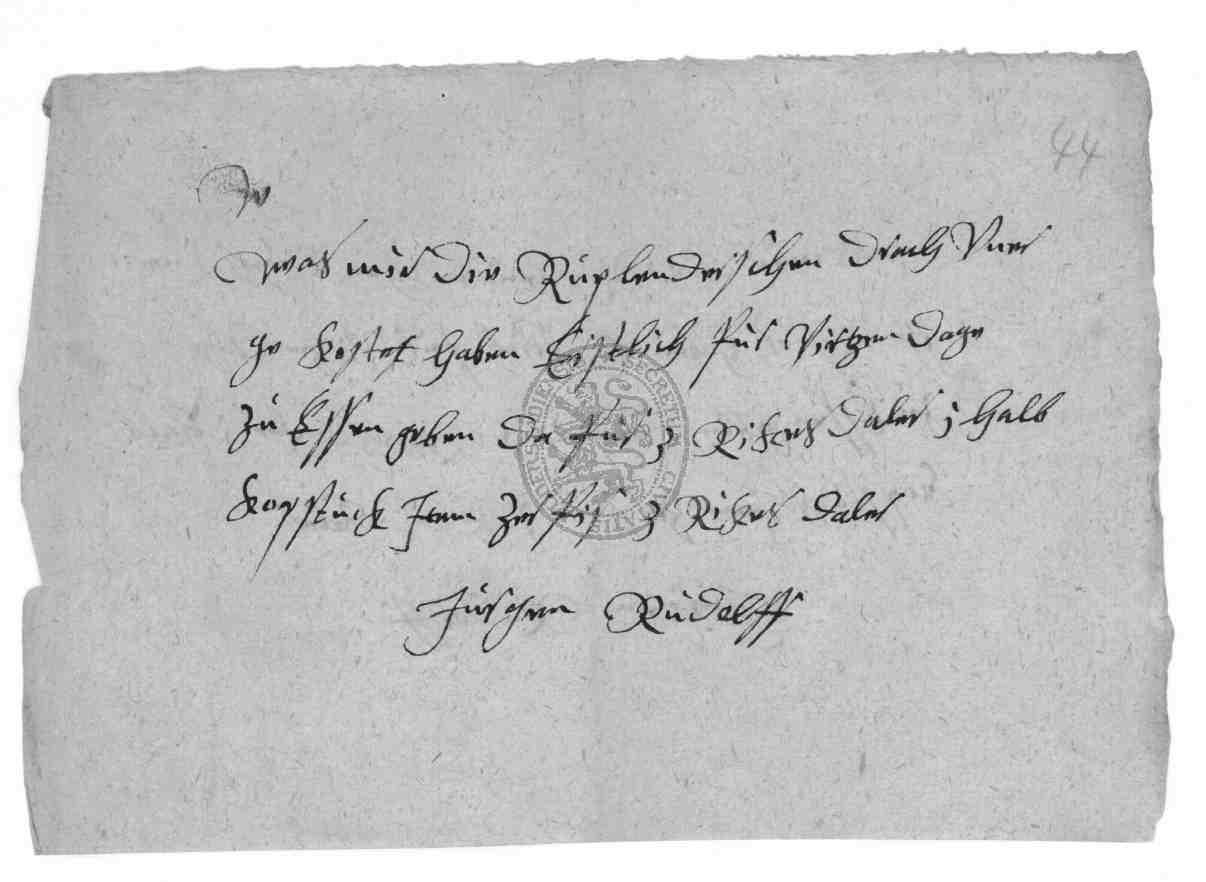 44
was mir die Ruplenderschen drach Vner
ge kostet haben Erstlich fur Virtzen dage
zu Essen geben da fur 3 Rickes daler j halb
kopstuck Item 3 Rickes daler
Jurchen Rudolff